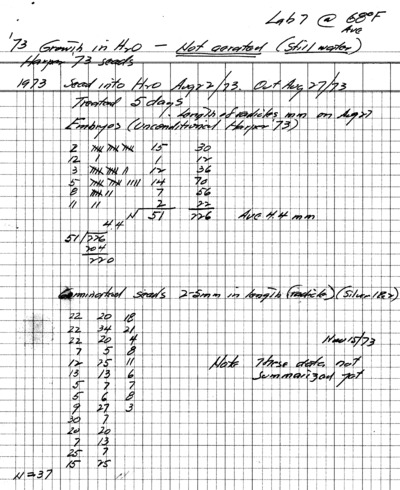 Lab 7 @ 68°F
Ave
'73 Growth in H2O — Not aerated (Still water)
Harper 73 seeds
1973 Seed into H2O Aug 22/73. Out Aug 27/73
Treated 5 days
1. Length of radicles mm on Aug 27
Embryos (Unconditional Harper 73)
2 15 30
12 1 1 12
3 12 36
5 14 70
8 7 56
11 11 2 22
N 51 226 Ave 4.4 mm
4 4
51 226
204
220
Germinated seeds 2-5mm in length (radicle) (Silver 18 & 2)
22 20 18
22 34 21
22 20 4 Nov 15/73
7 5 8
12 25 11 Note These data not
13 13 6 summarized yet
5 7 7
5 6 8
9 27 3
30 7
20 20
7 13
25 7
15 25
N=37